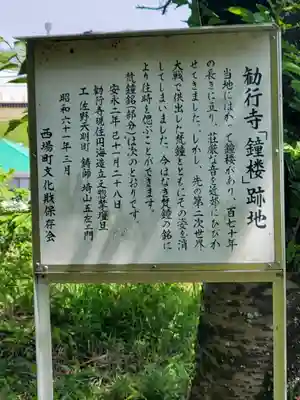 勧行寺「鐘楼」跡地
当地にはかつて鐘楼があり、百七十年
の長きに亘り、荘厳な音を近郊にひびか
せてきました。しかし、先の第二次世界
大戦で供出した梵鐘とともにその姿を消
してしまいました。今はなき梵鐘の銘に
より往時を偲ぶことができます。
梵鐘銘(部分)は次のとおりです。
安永二年己十一月二十八日
勧行寺現住円海造立之惣檀
工 佐野天明町 鋳師 埼山五左エ門
昭和六十一年三月
西場町文化財保存会